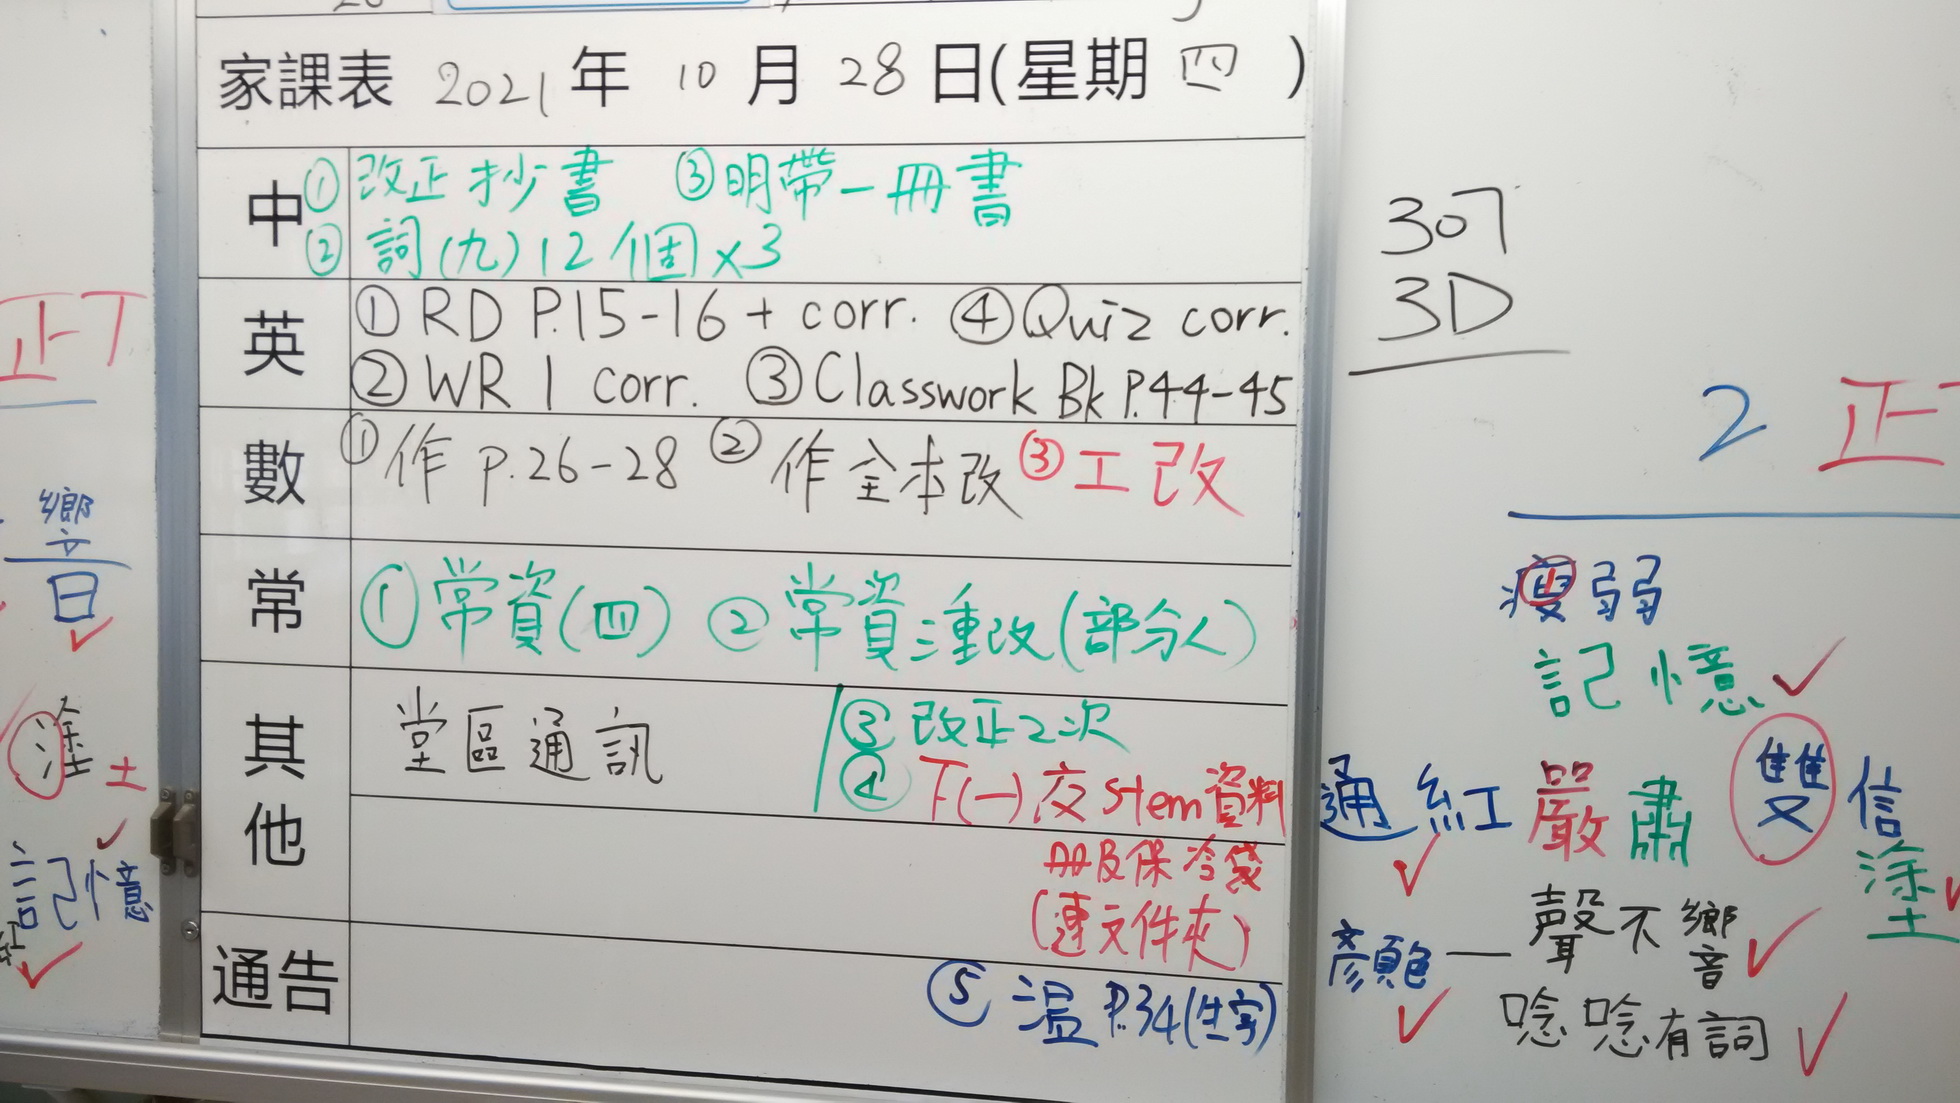 家課表 2021年10月28日(星期四)
中 ①改正抄書 ③明帶一冊書
②詞(九)12個x3
英 ①RD P.15-16 + corr. ④Quiz corr.
②WR 1 corr. ③Classwork Bk P.44-45
數 ①作 P.26-28 ②作全本改 ③工改
常 ①常資(四) ②常資重改(部分人)
其他 堂區通訊 ③改正2次
④下(一)交Stem資料
冊及保冷袋
(連文件夾)
通告 ⑤溫P.34(生字)
正丅
響
塗 土
記憶
307
3D
2 正
瘦弱
記憶
通紅 嚴肅 雙 信
塗
彥頁色 一聲不響
唸唸有詞